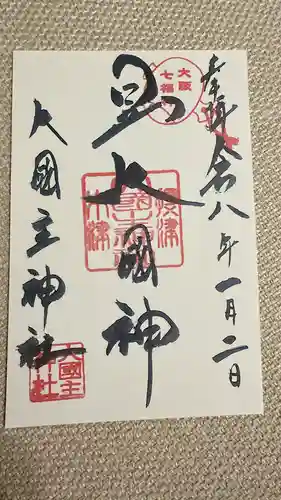 奉拝 令八年一月二日
大阪
七福
黒大國神
摂津
木津
大国主神社
大國主
神社